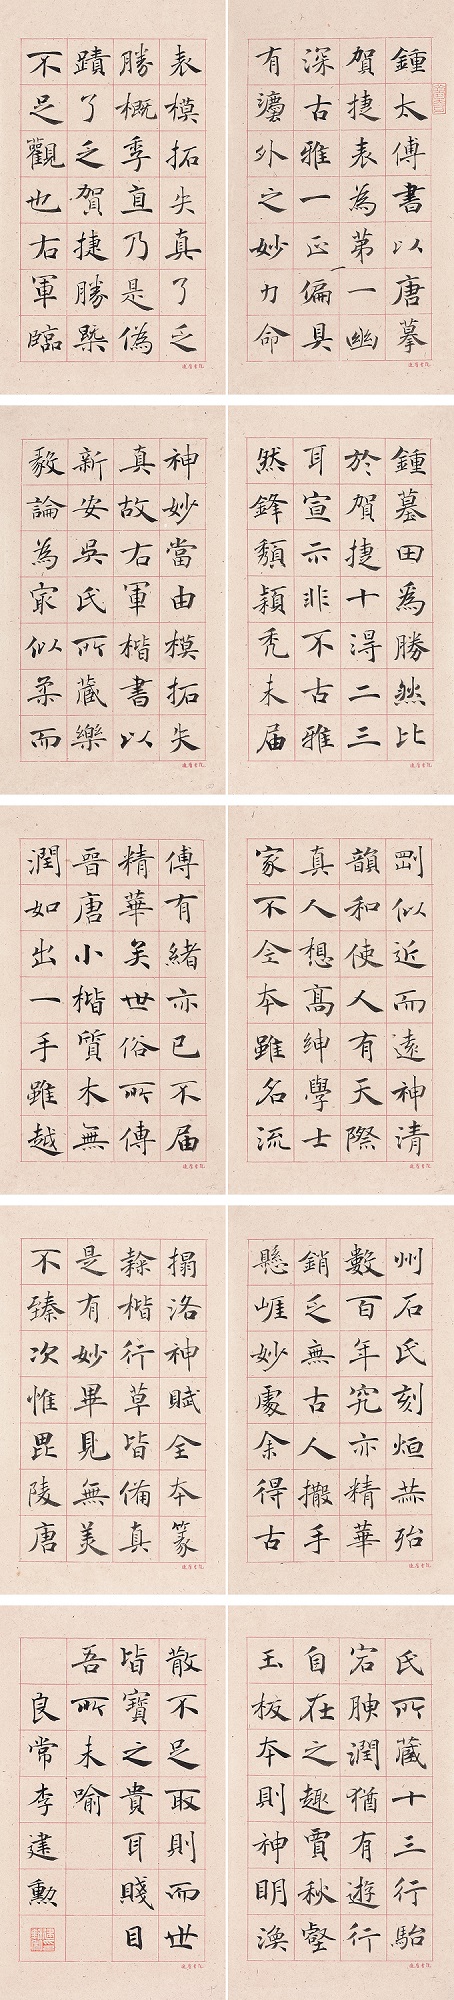 鍾太傅書以唐摹
賀捷表為第一幽
深古雅一正一偏具
有灋外之妙力命
表模拓失真了乏
勝概季直乃是偽
蹟了乏賀捷勝槩
不足觀也右軍臨
鍾墓田為勝然比
於賀捷十得二三
耳宣示非不古雅
然鋒頹穎秃未届
神妙當由模拓失
真故右軍楷書以
新安吳氏所藏樂
毅論為冣似柔而
剛似近而遠神清
韻和使人有天際
真人想髙紳學士
家不全本雖名流
傅有緒亦已不届
精華矣世俗所傳
晉唐小楷質木無
潤如出一手雖越
州石氏刻烜燕殆
數百年究亦精華
銷乏無古人撒手
懸崕妙處余得古
搨洛神賦全本篆
隸楷行草皆備真
是有妙畢見無美
不臻次惟毘陵唐
氏所藏十三行駘
宕腴潤猶有遊行
自在之趣賈秋壑
玉板本則神明渙
散不足取則而世
皆寶之貴耳賤目
吾所未喻
良常李建勲